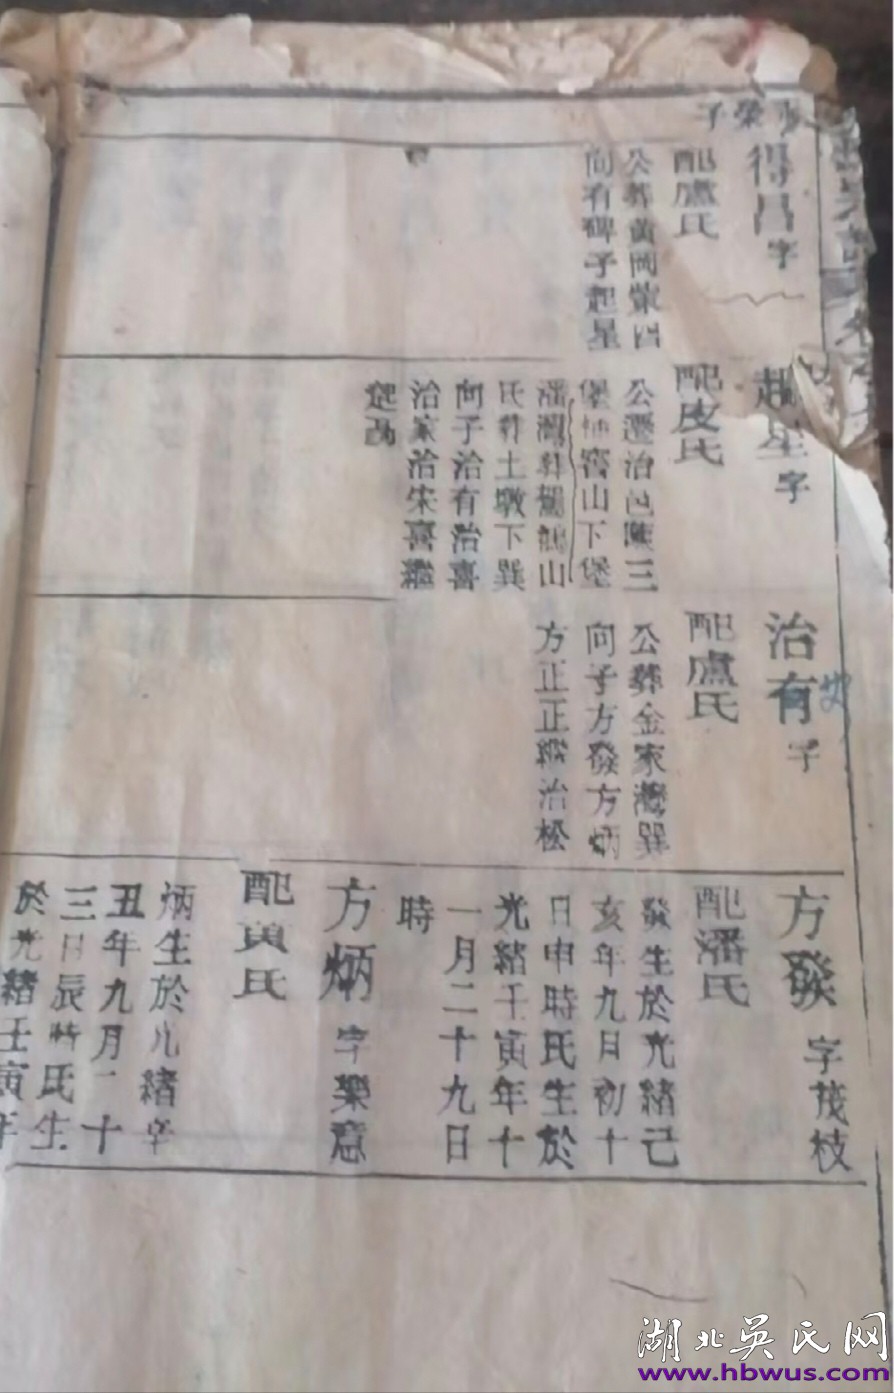 榮子
得昌字
配盧氏
公葬黃岡紫四
向有碑子起星
起星字
配皮氏
公遷治邑陳三
堡 窖山下堡
潘灣葬 山
氏葬土墩下巽
向子治有治喜
治家治宋喜繼
治有字
配盧氏
公葬金家灣巽
向子方發方炳
方正正繼治松
方發 字茂枝
配潘氏
發生於光緒己
亥年九日初十
日申時氏生於
光緒壬寅年十
一月二十九日
時
方炳 字樂意
配黃氏
炳生於光緒辛
丑年九月二十
三日辰時氏生
於光緒壬寅年
湖北吳氏网
www.hbwus.com